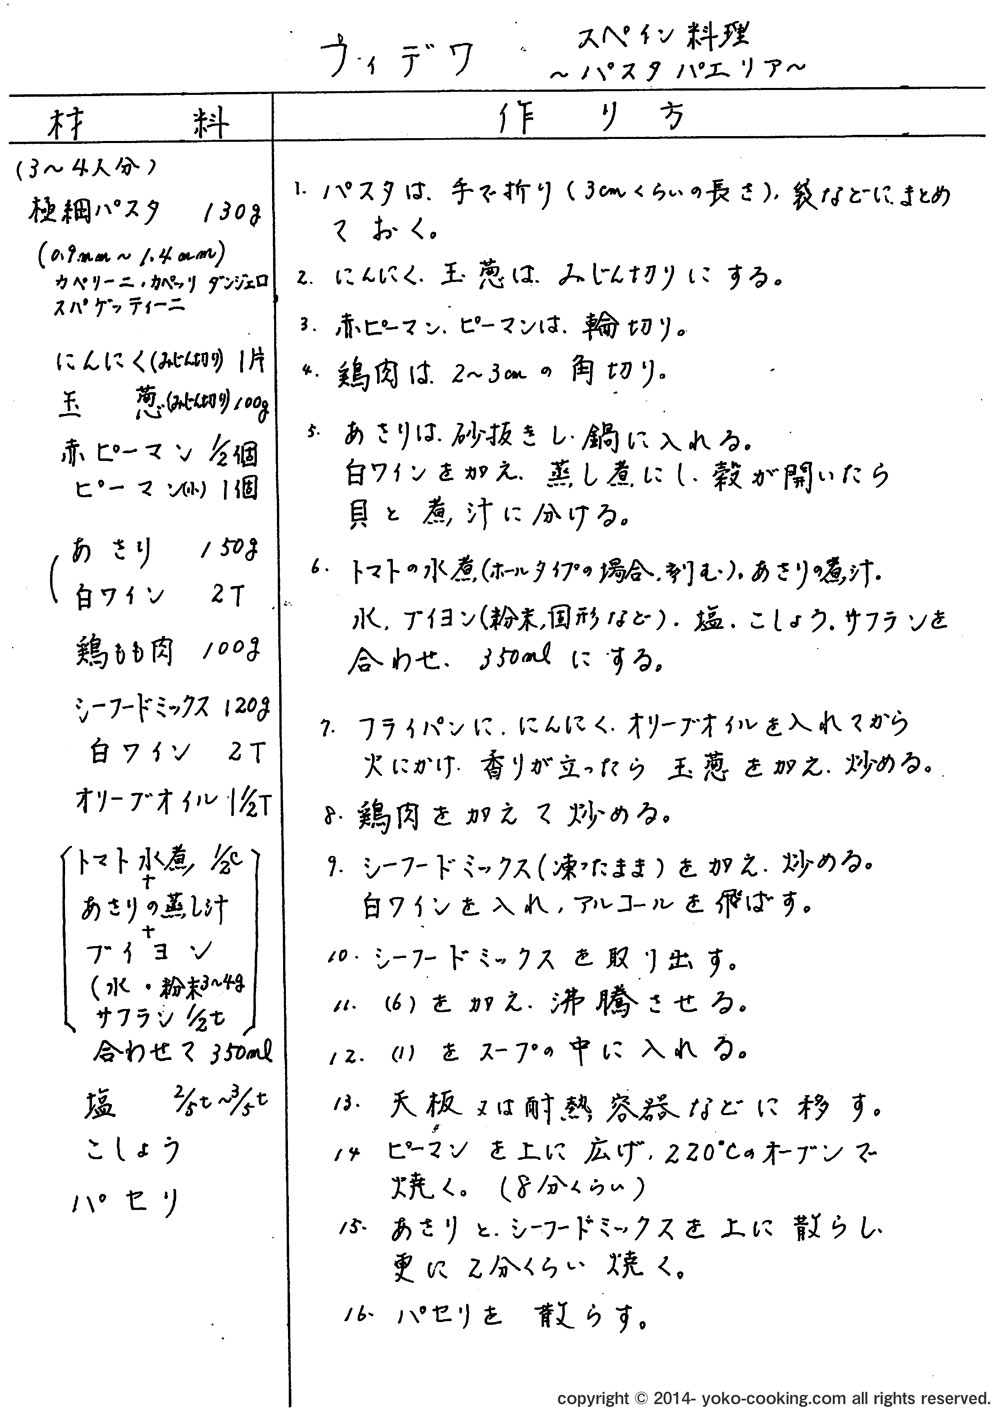 フィデワ
スペイン料理
～パスタパエリア～
材 料
(3～4人分)
極細パスタ 130g
(0.9mm～1.4mm)
カペリーニ・カペッリ ダンジェロ
スパゲッティーニ
にんにく(みじん切り) 1片
玉 葱(みじん切り) 100g
赤ピーマン 1/2個
ピーマン(小) 1個
あさり 150g
白ワイン 2T
鶏もも肉 100g
シーフードミックス 120g
白ワイン 2T
オリーブオイル 1 1/2T
トマト水煮 1/2C
+
あさりの蒸し汁
+
ブイヨン
(水・粉末3～4g
サフラン 1/2t
合わせて 350ml
塩 2/5t～3/5t
こしょう
パセリ
作 り 方
1. パスタは、手で折り(3cmくらいの長さ)、袋などにまとめ
ておく。
2. にんにく、玉葱は、みじん切りにする。
3. 赤ピーマン、ピーマンは、輪切り。
4. 鶏肉は、2～3cmの角切り。
5. あさりは、砂抜きし、鍋に入れる。
白ワインを加え、蒸し煮にし、殻が開いたら
貝と煮汁に分ける。
6. トマトの水煮(ホールタイプの場合、刻む)、あさりの煮汁、
水、ブイヨン(粉末、固形など)、塩、こしょう、サフランを
合わせ、350mlにする。
7. フライパンに、にんにく、オリーブオイルを入れてから
火にかけ、香りが立ったら玉葱を加え、炒める。
8. 鶏肉を加えて炒める。
9. シーフードミックス(凍ったまま)を加え、炒める。
白ワインを入れ、アルコールを飛ばす。
10. シーフードミックスを取り出す。
11. (6)を加え、沸騰させる。
12. (1)をスープの中に入れる。
13. 天板又は耐熱容器などに移す。
14 ピーマンを上に広げ、220℃のオーブンで
焼く。(8分くらい)
15. あさりと、シーフードミックスを上に散らし、
更に2分くらい焼く。
16. パセリを散らす。
copyright © 2014- yoko-cooking.com all rights reserved.